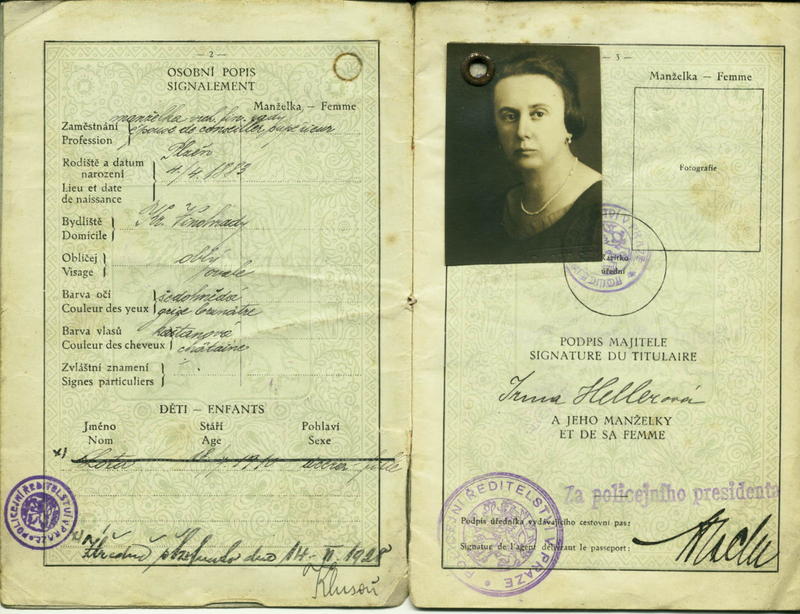 — 2 —
OSOBNÍ POPIS
SIGNALEMENT
Manželka, — Femme
Zaměstnání
Profession
manželka vrch. fin. rady
épouse de conseiller supérieur
Rodiště a datum
narození
Lieu et date
de naissance
Plzeň
4./4. 1883
Bydliště
Domicile
Kr. Vinohrady
Obličej
Visage
oblý
ovale
Barva očí
Couleur des yeux
šedohnědá
grise brunâtre
Barva vlasů
Couleur des cheveux
kaštanová
châtaine
Zvláštní znamení
Signes particuliers
DĚTI — ENFANTS
Jméno Stáří Pohlaví
Nom Age Sexe
x)
1910 dcera
POLICEJNÍ ŘEDITELSTVÍ V PRAZE
x)
dne 14. II. 1928
— 3 —
Manželka — Femme
Fotografie
Razítko
úřední
PODPIS MAJITELE
SIGNATURE DU TITULAIRE
Irma Hellerová
A JEHO MANŽELKY
ET DE SA FEMME
Za policejního presidenta
Podpis úředníka vydávajícího cestovní pas:
Signature de l'agent délivrant le passeport:
POLICEJNÍ ŘEDITELSTVÍ V PRAZE